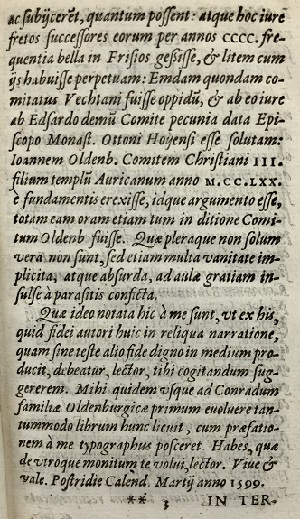 ac subijcerēt, quantum possent: atque hoc iure
fretos successores eorum per annos CCCC. fre-
quentia bella in Frisios gessisse, & litem cum
ijs habuisse perpetuam: Emdam quondam co-
mitatus Vechtani fuisse oppidū, & ab eo iure
ab Edsardo demū Comite pecunia data Epi-
scopo Monast. Ottoni Hoyensi esse solutam:
Ioannem Oldenb. Comitem Christiani III.
filium templū Auricanum anno M.CC.LXX.
è fundamentis erexisse, idque argumento esse,
totam eam oram etiam tum in ditione Comi-
tum Oldenb fuisse. Quæ pleraque non solum
vera non sunt, sed etiam multa vanitate im-
plicita, atque absurda, ad aulæ gratiam in-
sulse à parasitis conficta.
Quæ ideo notata hic à me sunt, vt ex his,
quid fidei autori huic in reliqua narratione,
quam sine teste alio fide digno in medium pro-
ducit, debeatur, lector, tibi cogitandum sug-
gererem. Mihi quidem vsque ad Conradum
familiæ Oldenburgicæ primum euoluere tan-
tummodo librum hunc licuit, cum præfatio-
nem à me typographus posceret. Habes, quæ
de vtroque monitum te volui, lector. Viue &
vale. Postridie Calend. Martij anno 1599.
** 3 IN TER-